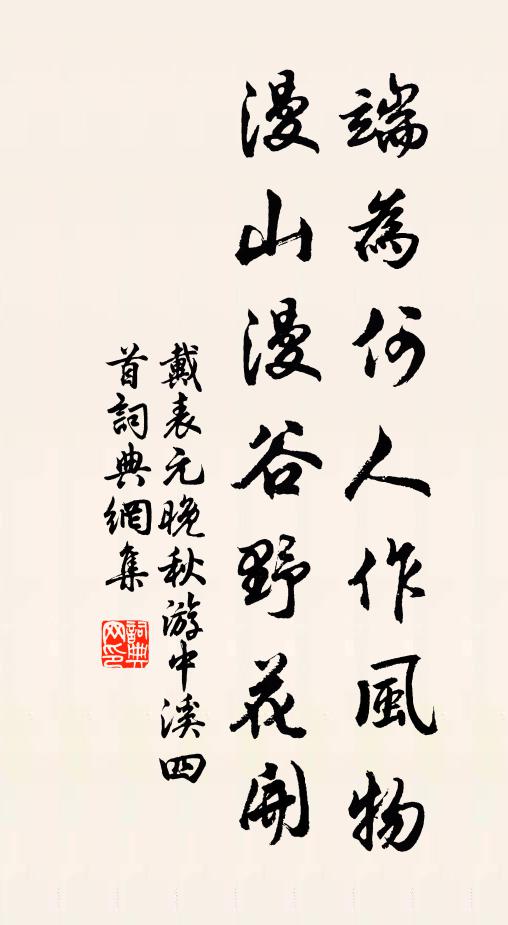 端為何人作風物
漫山漫谷野花開
戴表元晚秋游中溪四
首詞典網集
詞典
网印